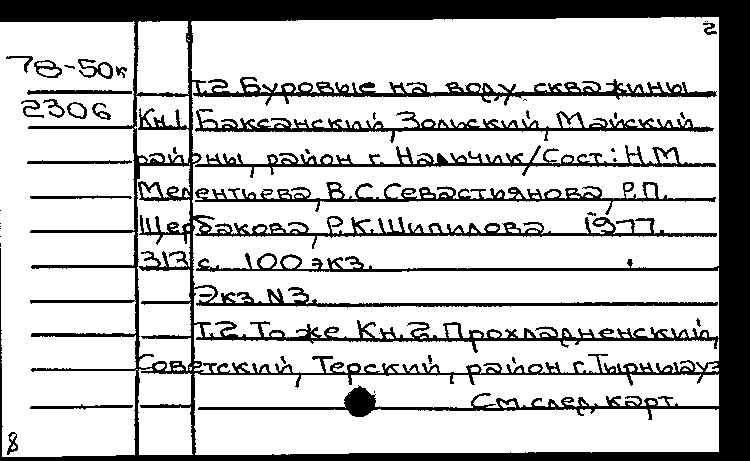 2
78-50к
Т.2 Буровые на воду скважины
2306 Кн.1. Баксанский, Зольский, Майский
районы, район г. Нальчик/Сост.: Н.М.
Мелентьева, В.С. Севастьянова, Р.П.
Щербакова, Р.К. Шипилова. 1977.
313 с. 100 экз.
Экз. N3.
Т.2. То же. Кн.2. Прохладненский,
Советский, Терский, район г. Тырныауз
См. след. карт.
8